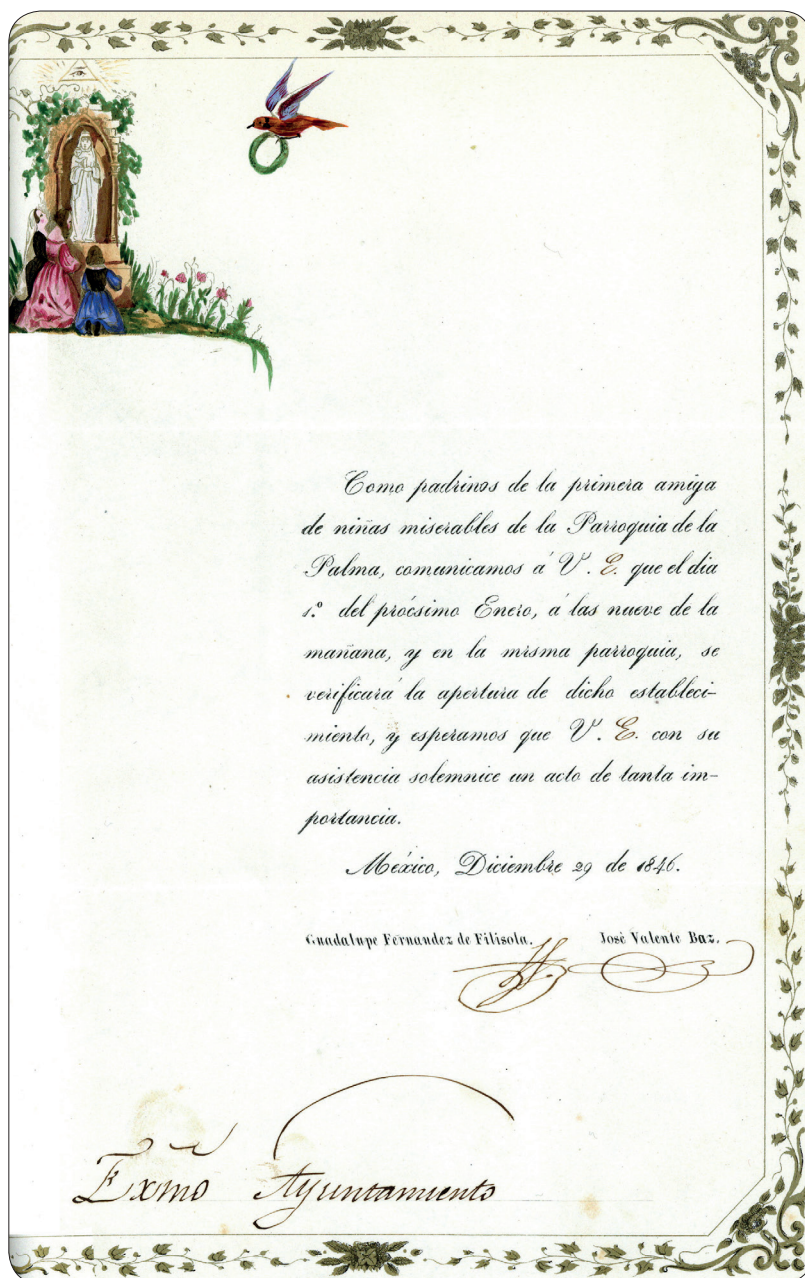 Como padrinos de la primera amiga
de niñas miserables de la Parroquia de la
Palma, comunicamos á V. E. que el dia
1.º del prócsimo Enero, á las nueve de la
mañana, y en la misma parroquia, se
verificará la apertura de dicho estableci-
miento, y esperamos que V. E. con su
asistencia solemnice un acto de tanta im-
portancia.
México, Diciembre 29 de 1846.
Guadalupe Fernandez de Filisola. José Valente Baz.
Exmõ Ayuntamiento